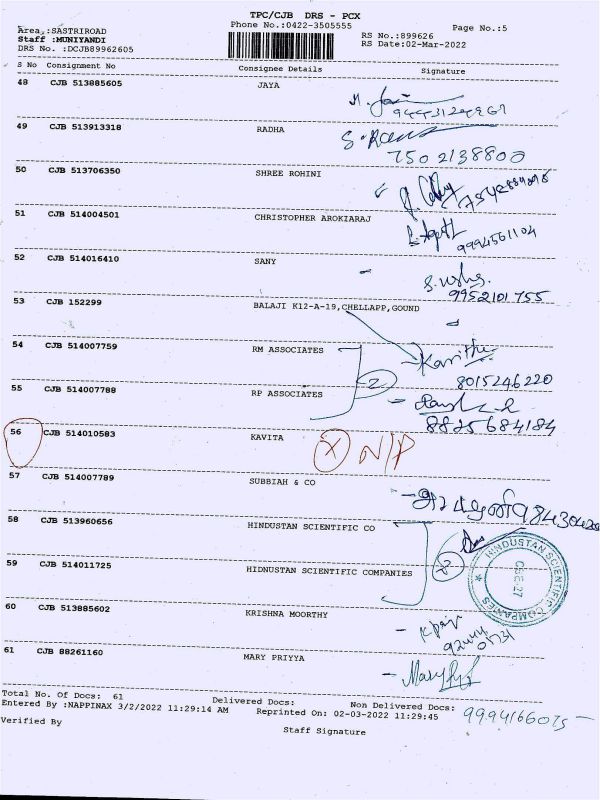 TPC/CJB DRS - PCX
Area :SASTRIROAD Phone No.:0422-3505555 Page No.:5
Staff :MUNIYANDI RS No.:899626
DRS No. :DCJB89962605 RS Date:02-Mar-2022
S No Consignment No Consignee Details Signature
48 CJB 513885605 JAYA
49 CJB 513913318 RADHA
7502138800
50 CJB 513706350 SHREE ROHINI
51 CJB 514004501 CHRISTOPHER AROKIARAJ
9994561104
52 CJB 514016410 SANY
9952101755
53 CJB 152299 BALAJI K12-A-19,CHELLAPP,GOUND
54 CJB 514007759 RM ASSOCIATES 2 Kavitha
8015246220
55 CJB 514007788 RP ASSOCIATES
8825684184
56 CJB 514010583 KAVITA X N/P
57 CJB 514007789 SUBBIAH & CO
58 CJB 513960656 HINDUSTAN SCIENTIFIC CO
2 HINDUSTAN SCIENTIFIC COMPANIES CBE-27
59 CJB 514011725 HIDNUSTAN SCIENTIFIC COMPANIES
60 CJB 513885602 KRISHNA MOORTHY
61 CJB 88261160 MARY PRIYYA
Total No. Of Docs: 61 Delivered Docs: Non Delivered Docs:
Entered By :NAPPINAX 3/2/2022 11:29:14 AM Reprinted On: 02-03-2022 11:29:45
Verified By Staff Signature